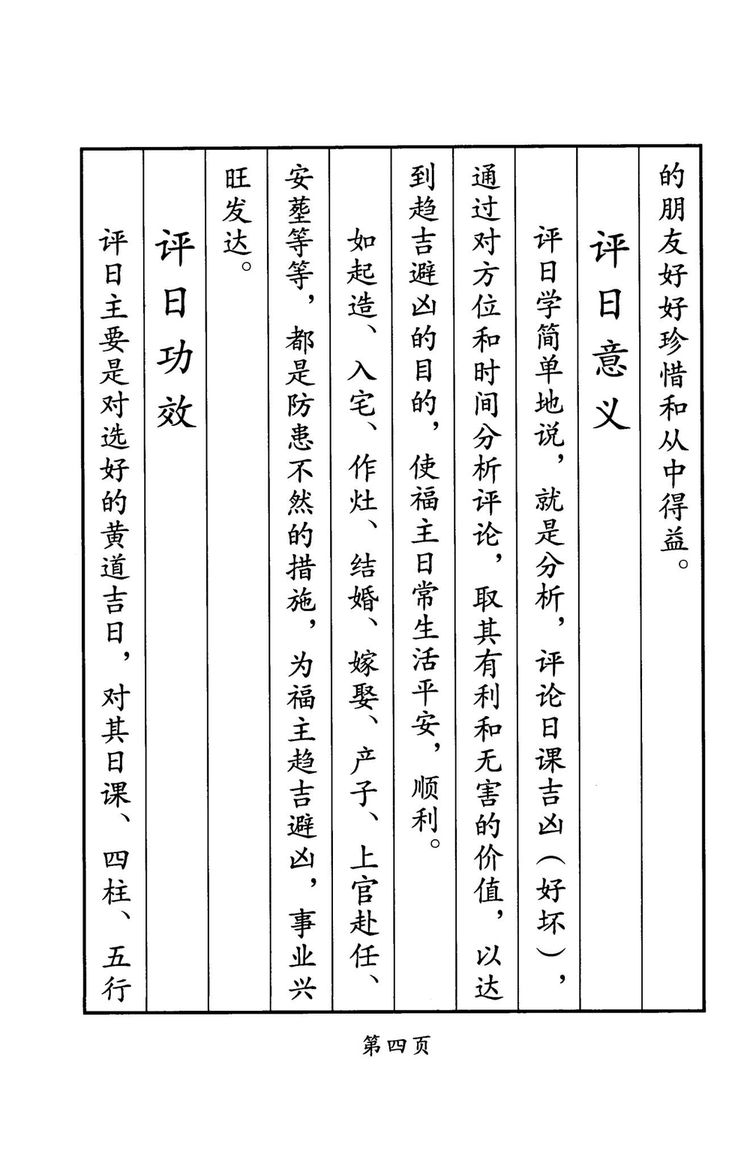 的朋友好好珍惜和从中得益。
评日意义
评日学简单地说，就是分析，评论日课吉凶（好坏），
通过对方位和时间分析评论，取其有利和无害的价值，以达
到趋吉避凶的目的，使福主日常生活平安，顺利。
如起造、入宅、作灶、结婚、嫁娶、产子、上官赴任、
安葬等等，都是防患不然的措施，为福主趋吉避凶，事业兴
旺发达。
评日功效
评日主要是对选好的黄道吉日，对其日课、四柱、五行
第四页